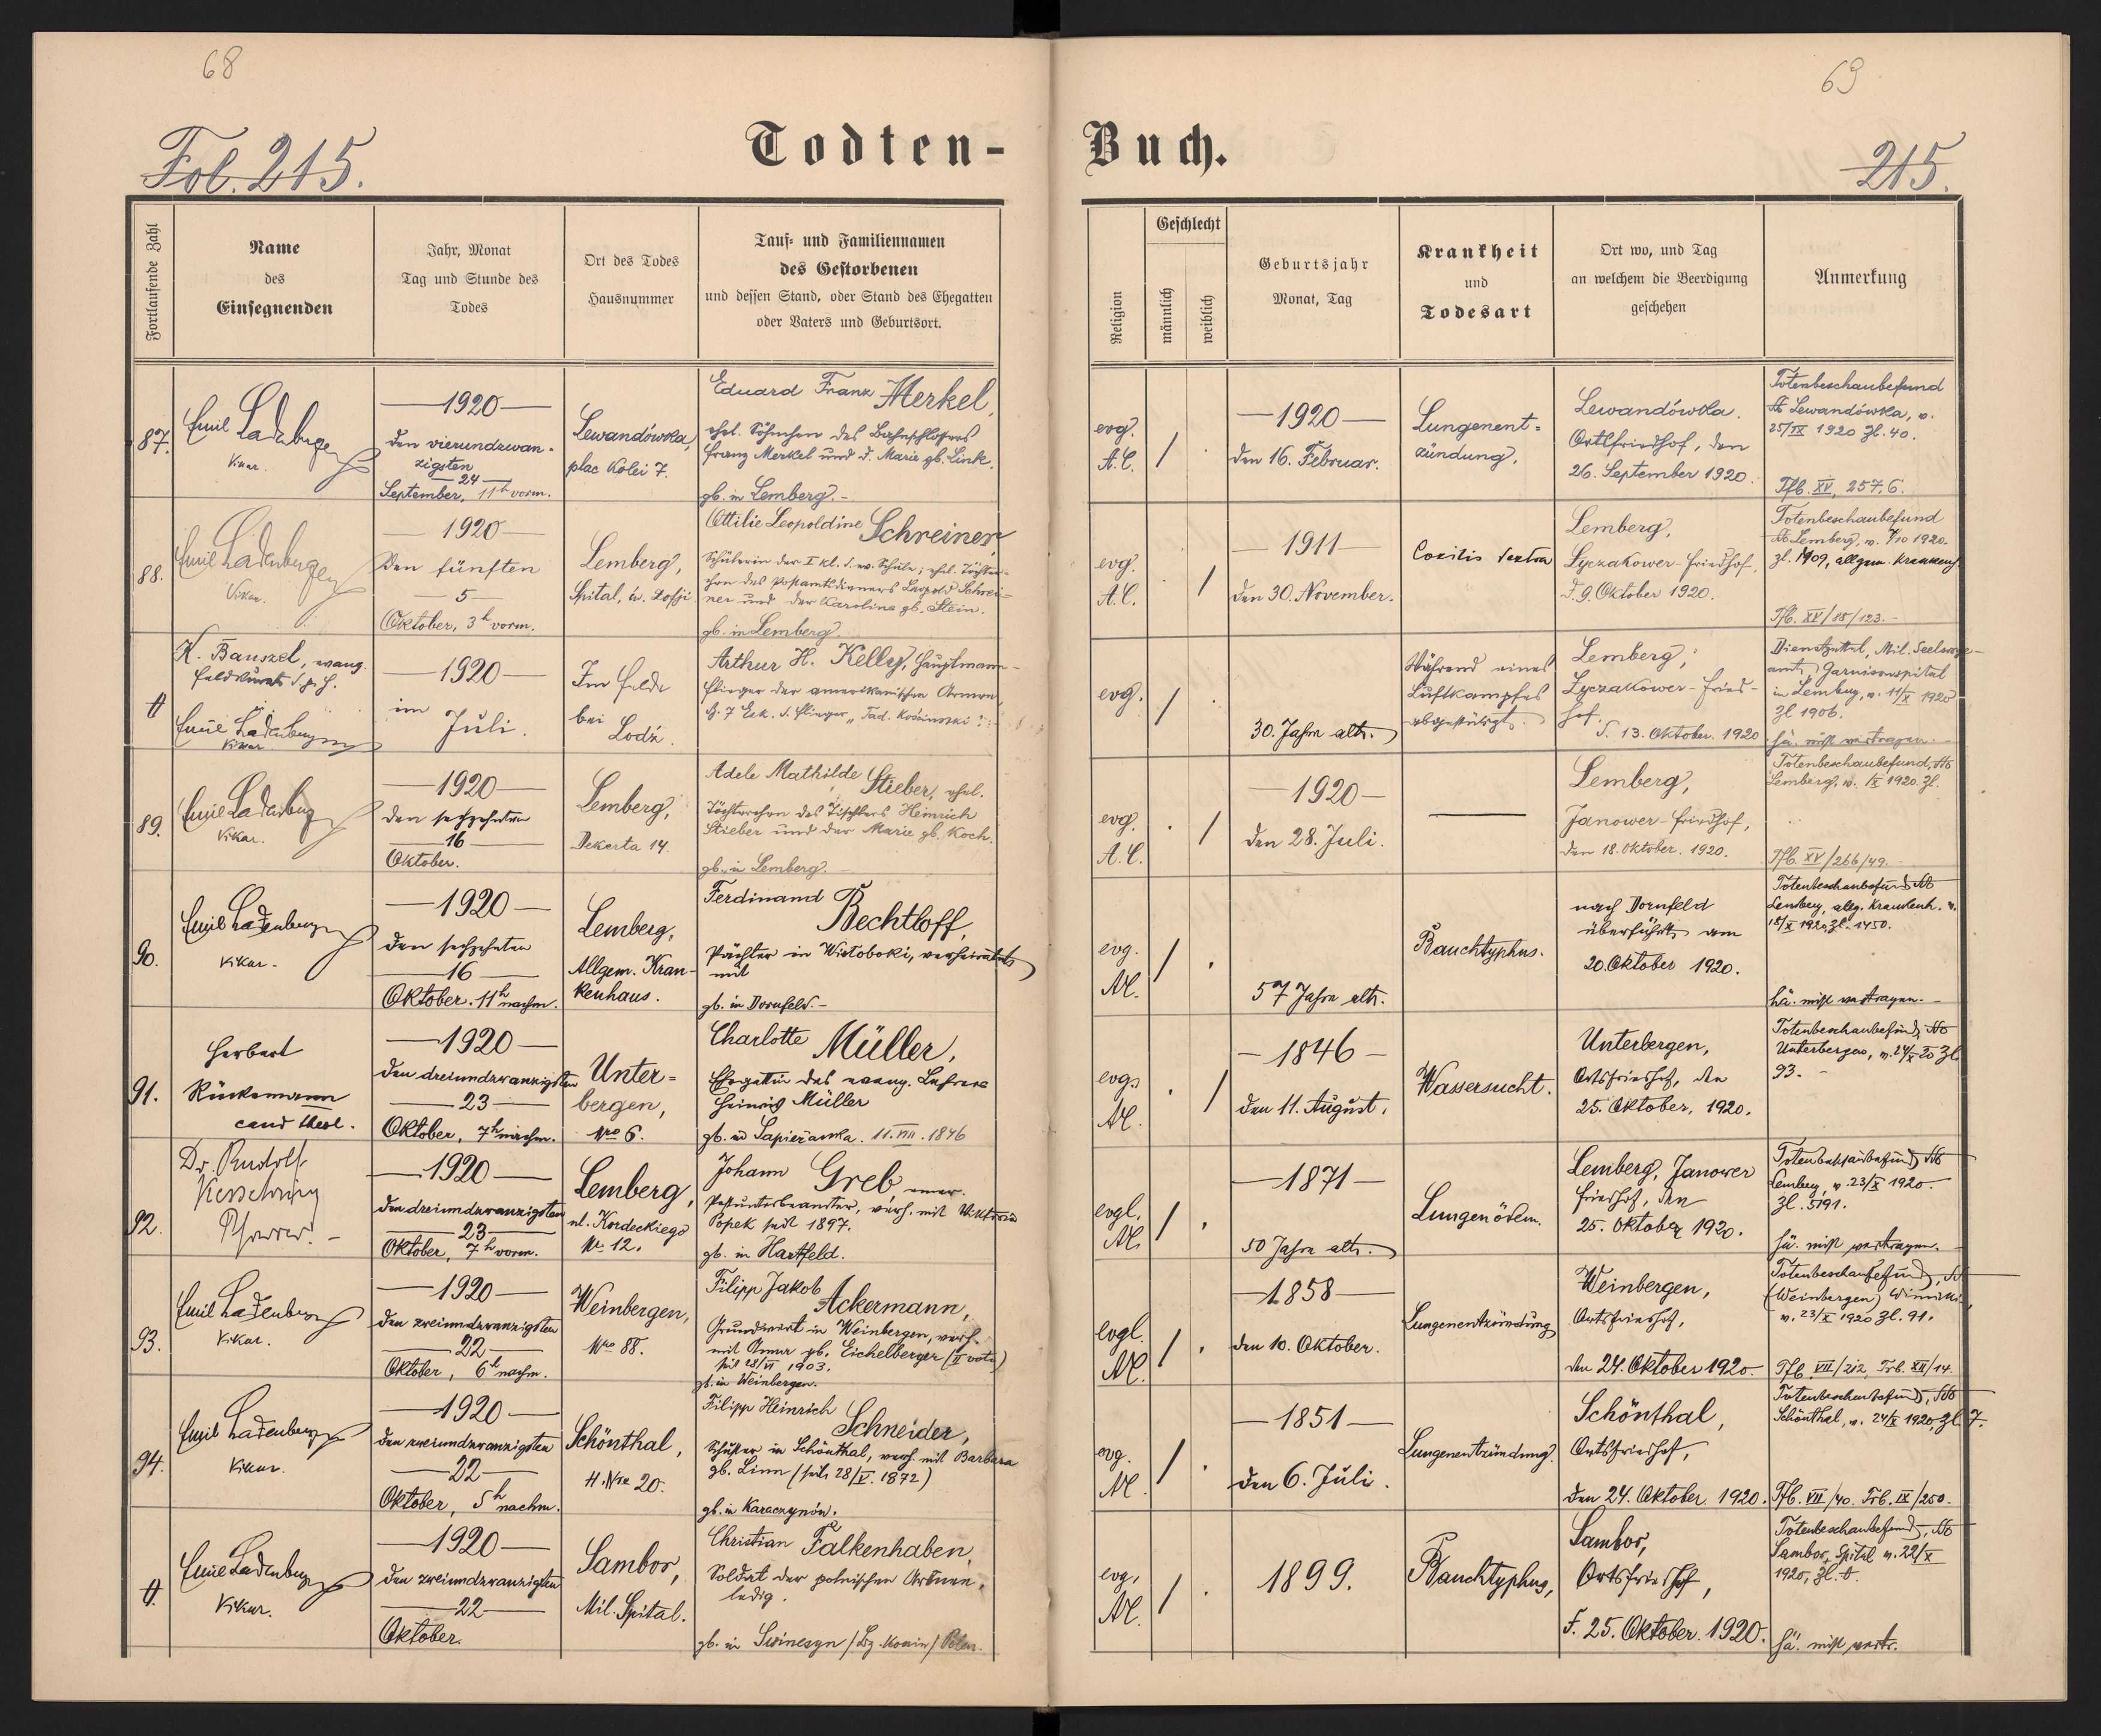 68
Fol. 215.
Todten-
Fortlaufende Zahl
Name
des
Einsegnenden
Jahr, Monat
Tag und Stunde des
Todes
Ort des Todes
Hausnummer
Tauf- und Familiennamen
des Gestorbenen
und dessen Stand, oder Stand des Ehegatten
oder Vaters und Geburtsort.
87.
Emil Ladenberger
Vikar.
1920
den vierundzwan-
zigsten
24
September, 11h vorm.
Lewandówka,
plac Kolei 7.
Eduard Franz Merkel,
ehel. Söhnchen des Bahnschlossers
Franz Merkel und d. Marie gb. Link.
gb. in Lemberg.-
88.
Emil Ladenberger
Vikar.
1920
Den fünften
5
Oktober, 3h vorm.
Lemberg,
Spital, św. Zofji
Ottilie Leopoldine Schreiner,
Schülerin der I kl. d. ev. Schule; ehel. Töchter-
chen des Postamtdieners Leopold Schrei-
ner und der Karoline gb. Stein.
gb. in Lemberg.
K. Banszel, evang.
Feldkurat
Emil Ladenberger
Vikar
1920
im
Juli.
Im Felde
bei
Lodz.
Arthur H. Kelly, Hauptmann-
flieger der amerikanischen Armee,
z. 7 Esk. d. flieger "Tad. Kościuszki".
89.
Emil Ladenberger
Vikar.
1920
den sechzehnten
16
Oktober.
Lemberg,
Dekerta 14.
Adele Mathilde Stieber, ehel.
Töchterchen des Tischlers Heinrich
Stieber und der Marie gb. Koch.
gb. in Lemberg.
90.
Emil Ladenberger
Vikar.
1920
den sechzehnten
16
Oktober. 11h nachm.
Lemberg,
Allgem. Kran-
kenhaus.
Ferdinand Bechtloff,
Pächter in Wistoboki, verheiratet
mit
gb. in Dornfeld.-
91.
Herbert
Rückemann
cand theol.
1920
den dreiundzwanzigsten
23
Oktober, 7h nachm.
Unter-
bergen,
Nro 6.
Charlotte Müller,
Ehegattin des evang. Lehrers
Heinrich Müller
gb. in Sapieżanka. 11.VIII.1846
92.
Dr. Rudolf
Kesselring
Pfarrer.-
1920
den dreiundzwanzigsten
23
Oktober, 7h vorm.
Lemberg,
ul. Kordeckiego
Nr. 12.
Johann Greb, emer.
Postunterbeamter, verh. mit Viktoria
Popek seit 1897.
gb. in Hartfeld.
93.
Emil Ladenberger
Vikar.
1920
den zweiundzwanzigsten
22
Oktober, 6h nachm.
Weinbergen,
Nro 88.
Filipp Jakob Ackermann,
Grundwirt in Weinbergen, verh.
mit Anna gb. Eichelberger (II voto)
seit 28/VI 1903.
gb. in Weinbergen.
94.
Emil Ladenberger
Vikar.
1920
den zweiundzwanzigsten
22
Oktober, 5h nachm.
Schönthal,
H. Nro 20.
Filipp Heinrich Schneider,
Schuster in Schönthal, verh. mit Barbara
gb. Linn (seit 28/V. 1872)
gb. in Karaczynów.
Emil Ladenberger
Vikar.
1920
den zweiundzwanzigsten
22
Oktober.
Sambor,
Mil. Spital.
Christian Falkenhaben,
Soldat der polnischen Armee,
ledig.
gb. in (Bz. Konin) Polen.
69
215.
Buch.
Religion
Geschlecht
männlich
weiblich
Geburtsjahr
Monat, Tag
Krankheit
und
Todesart
Ort wo, und Tag
an welchem die Beerdigung
geschehen
Anmerkung
evg.
A.C.
1920
den 16. Februar.
Lungenent-
zündung.
Lewandówka.
Ortsfriedhof, den
26. September 1920.
Totenbeschaubefund
Lewandówka, v.
25/IX 1920 Zl. 40.
Tfb. XV, 257, 6.
evg.
A.C.
1911
den 30. November.
Coxitis dextra
Lemberg,
Lyczakower-Friedhof,
d. 9. Oktober 1920.
Totenbeschaubefund
Lemberg, v. 7/10 1920.
Zl. 1909, allgem. Krankenh.
Tfb. XV/85/123.-
evg.
30. Jahre alt.
Während eines
Luftkampfes
abgestürzt.
Lemberg;
Lyczakower-Fried-
hof.
d. 13. Oktober. 1920
Dienstzettel, Mil. Seelsorge-
amt, Garnisonspital
in Lemberg, v. 11/X 1920
Zl 1906.
hä. nicht vertragen.
evg.
A.C.
1920
den 28. Juli.
Lemberg,
Janower-Friedhof,
den 18. Oktober. 1920.
Totenbeschaubefund,
Lemberg, v. /X 1920. Zl.
Tfb. XV/266/49.
evg.
AC.
57 Jahre alt.
Bauchtyphus.
nach Dornfeld
überführt, am
20. Oktober 1920.
Totenbeschaubefund
Lemberg, allg. Krankenh. v.
18/X 1920, Zl. 1450.
hä. nicht vertragen.-
evg.
AC.
1846
den 11. August.
Wassersucht.
Unterbergen,
Ortsfriedhof, den
25. Oktober, 1920.
Totenbeschaubefund,
Unterbergen, v. 24/X 20 Zl.
93.-
evgl.
AC.
1871
50 Jahre alt.
Lungenödem.
Lemberg, Janower
Friedhof, den
25. Oktober 1920.
Totenbeschaubefund
Lemberg, v. 23/X 1920.
Zl. 5191.
hä. nicht vertragen.
evgl.
AC.
1858
den 10. Oktober.
Lungenentzündung
Weinbergen,
Ortsfriedhof,
den 24. Oktober 1920.
Totenbeschaubefund,
(Weinbergen) Winniki
v. 23/X 1920 Zl. 91.
Tfb. VII/212, Trb. XII/14
evg.
AC.
1851
den 6. Juli.
Lungenentzündung.
Schönthal,
Ortsfriedhof,
den 24. Oktober. 1920.
Totenbeschaubefund,
Schönthal, v. 24/X 1920, Zl. 7.
Tfb. VII/40. Trb. IX/250.
evg.
AC.
1899.
Bauchtyphus,
Sambor,
Ortsfriedhof,
d. 25. Oktober. 1920.
Totenbeschaubefund,
Sambor, Spital v. 22/X
1920, Zl.
hä. nicht vertr.